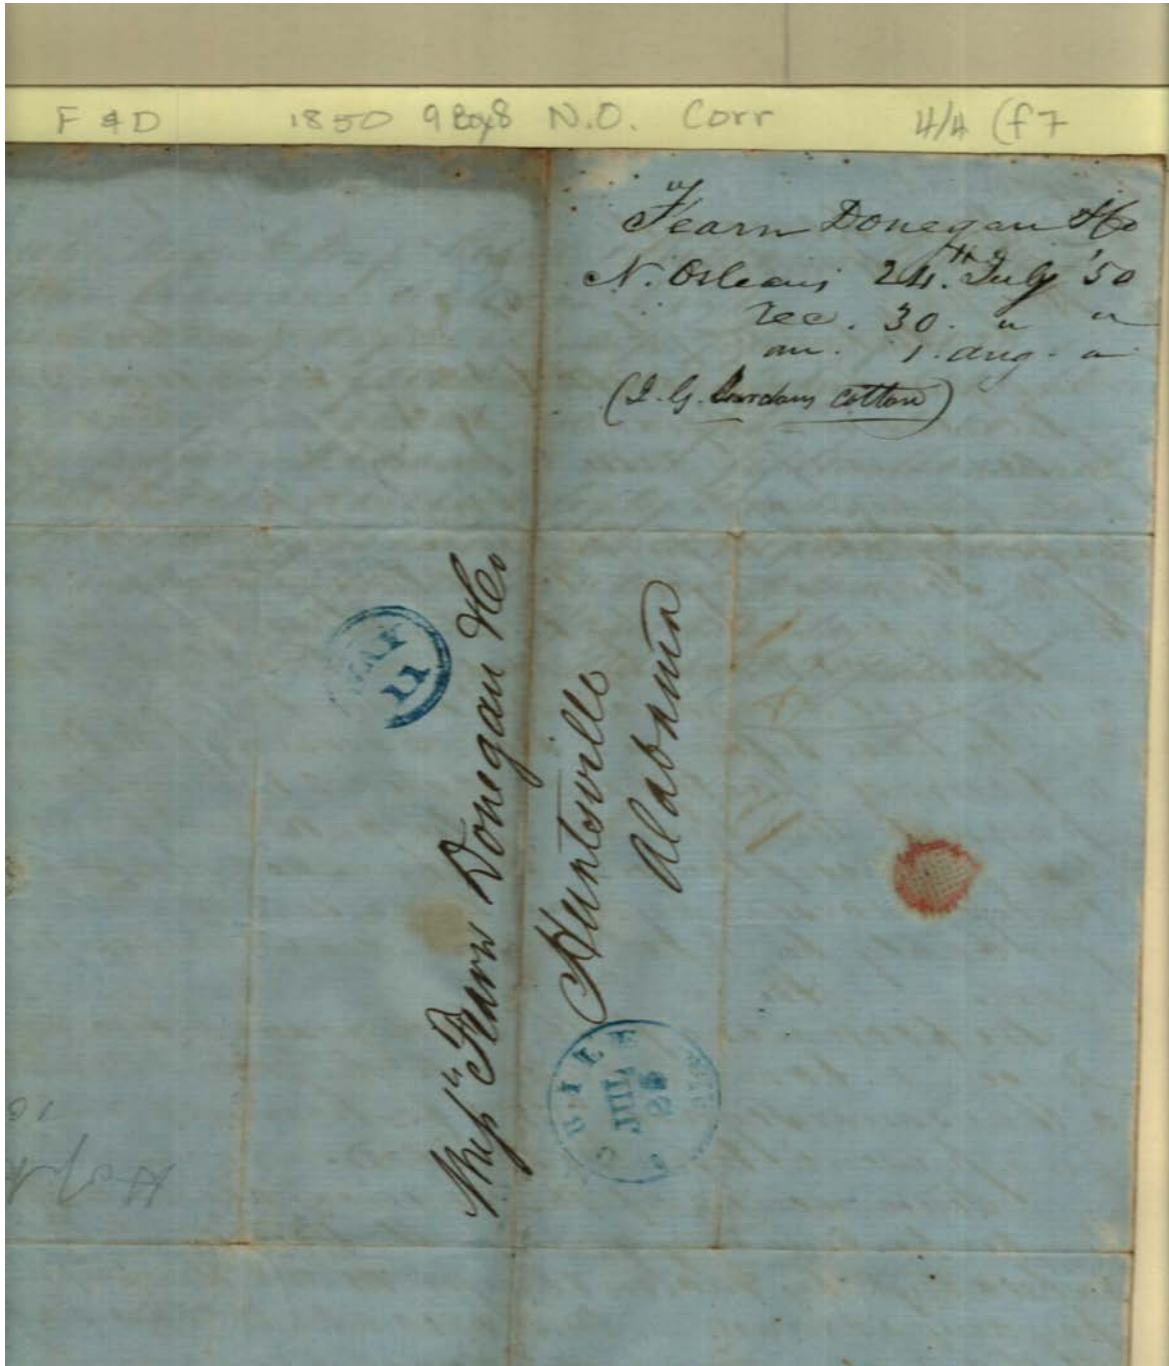 F & D 1850 9 Box 8 N.O. Corr 4/4 (f7
Fearn Donegan & Co
N. Orleans 24th July '50
rec. 30. " "
an. 1. Aug. "
(cotton)
Mess" Fearn Donegan & Co
Huntsville
Alabama
11
JUL